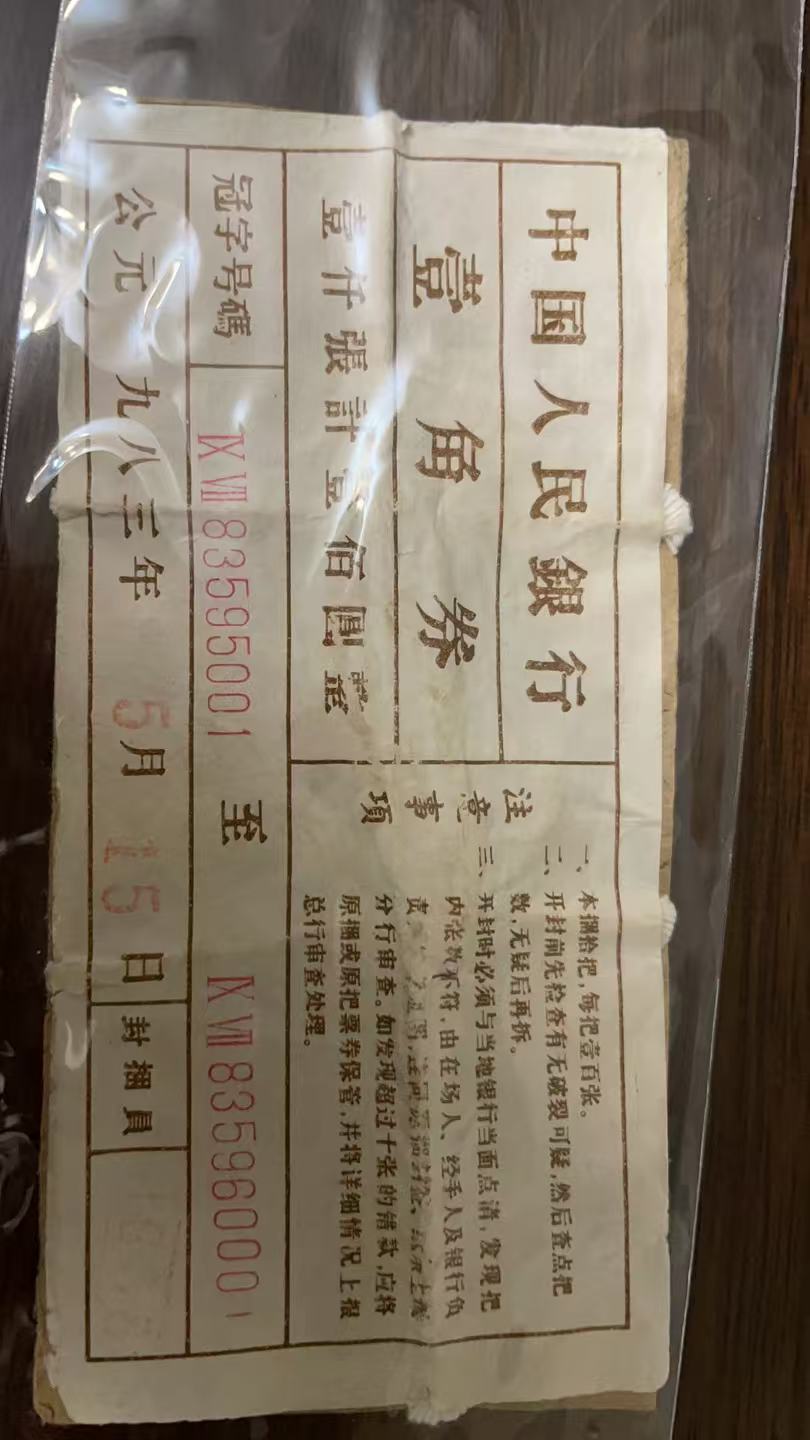 中国人民銀行
壹角券
壹仟張計壹佰圓整
冠字号碼 ⅨⅦ83595001 至 ⅨⅦ83596000
公元一九八三年5月15日 封捆員
注意事項
一、本捆拾把,每把壹百张。
二、开封前先检查有无破裂可疑,然后查点把
数,无疑后再拆。
三、开封时必须与当地银行当面点清,发现把
内张数不符,由在场人、经手人及银行负
责
分行审查。如发现超过十张的错款,应将
原捆或原把票券保管,并将详细情况上报
总行审查处理。